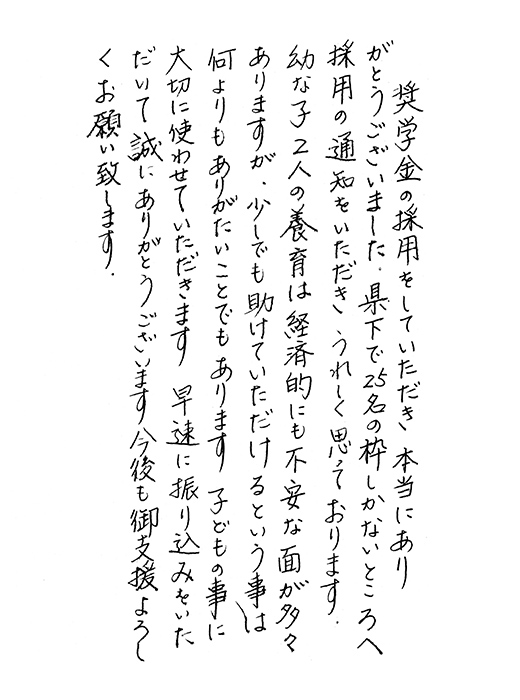 奨学金の採用をしていただき 本当にあり
がとうございました．県下で25名の枠しかないところへ
採用の通知をいただき うれしく思っております．
幼な子2人の養育は経済的にも不安な面が多々
ありますが、少しでも助けていただけるという事は
何よりもありがたいことでもあります 子どもの事に
大切に使わせていただきます 早速に振り込みをいた
だいて 誠にありがとうございます 今後も御支援よろし
くお願い致します．